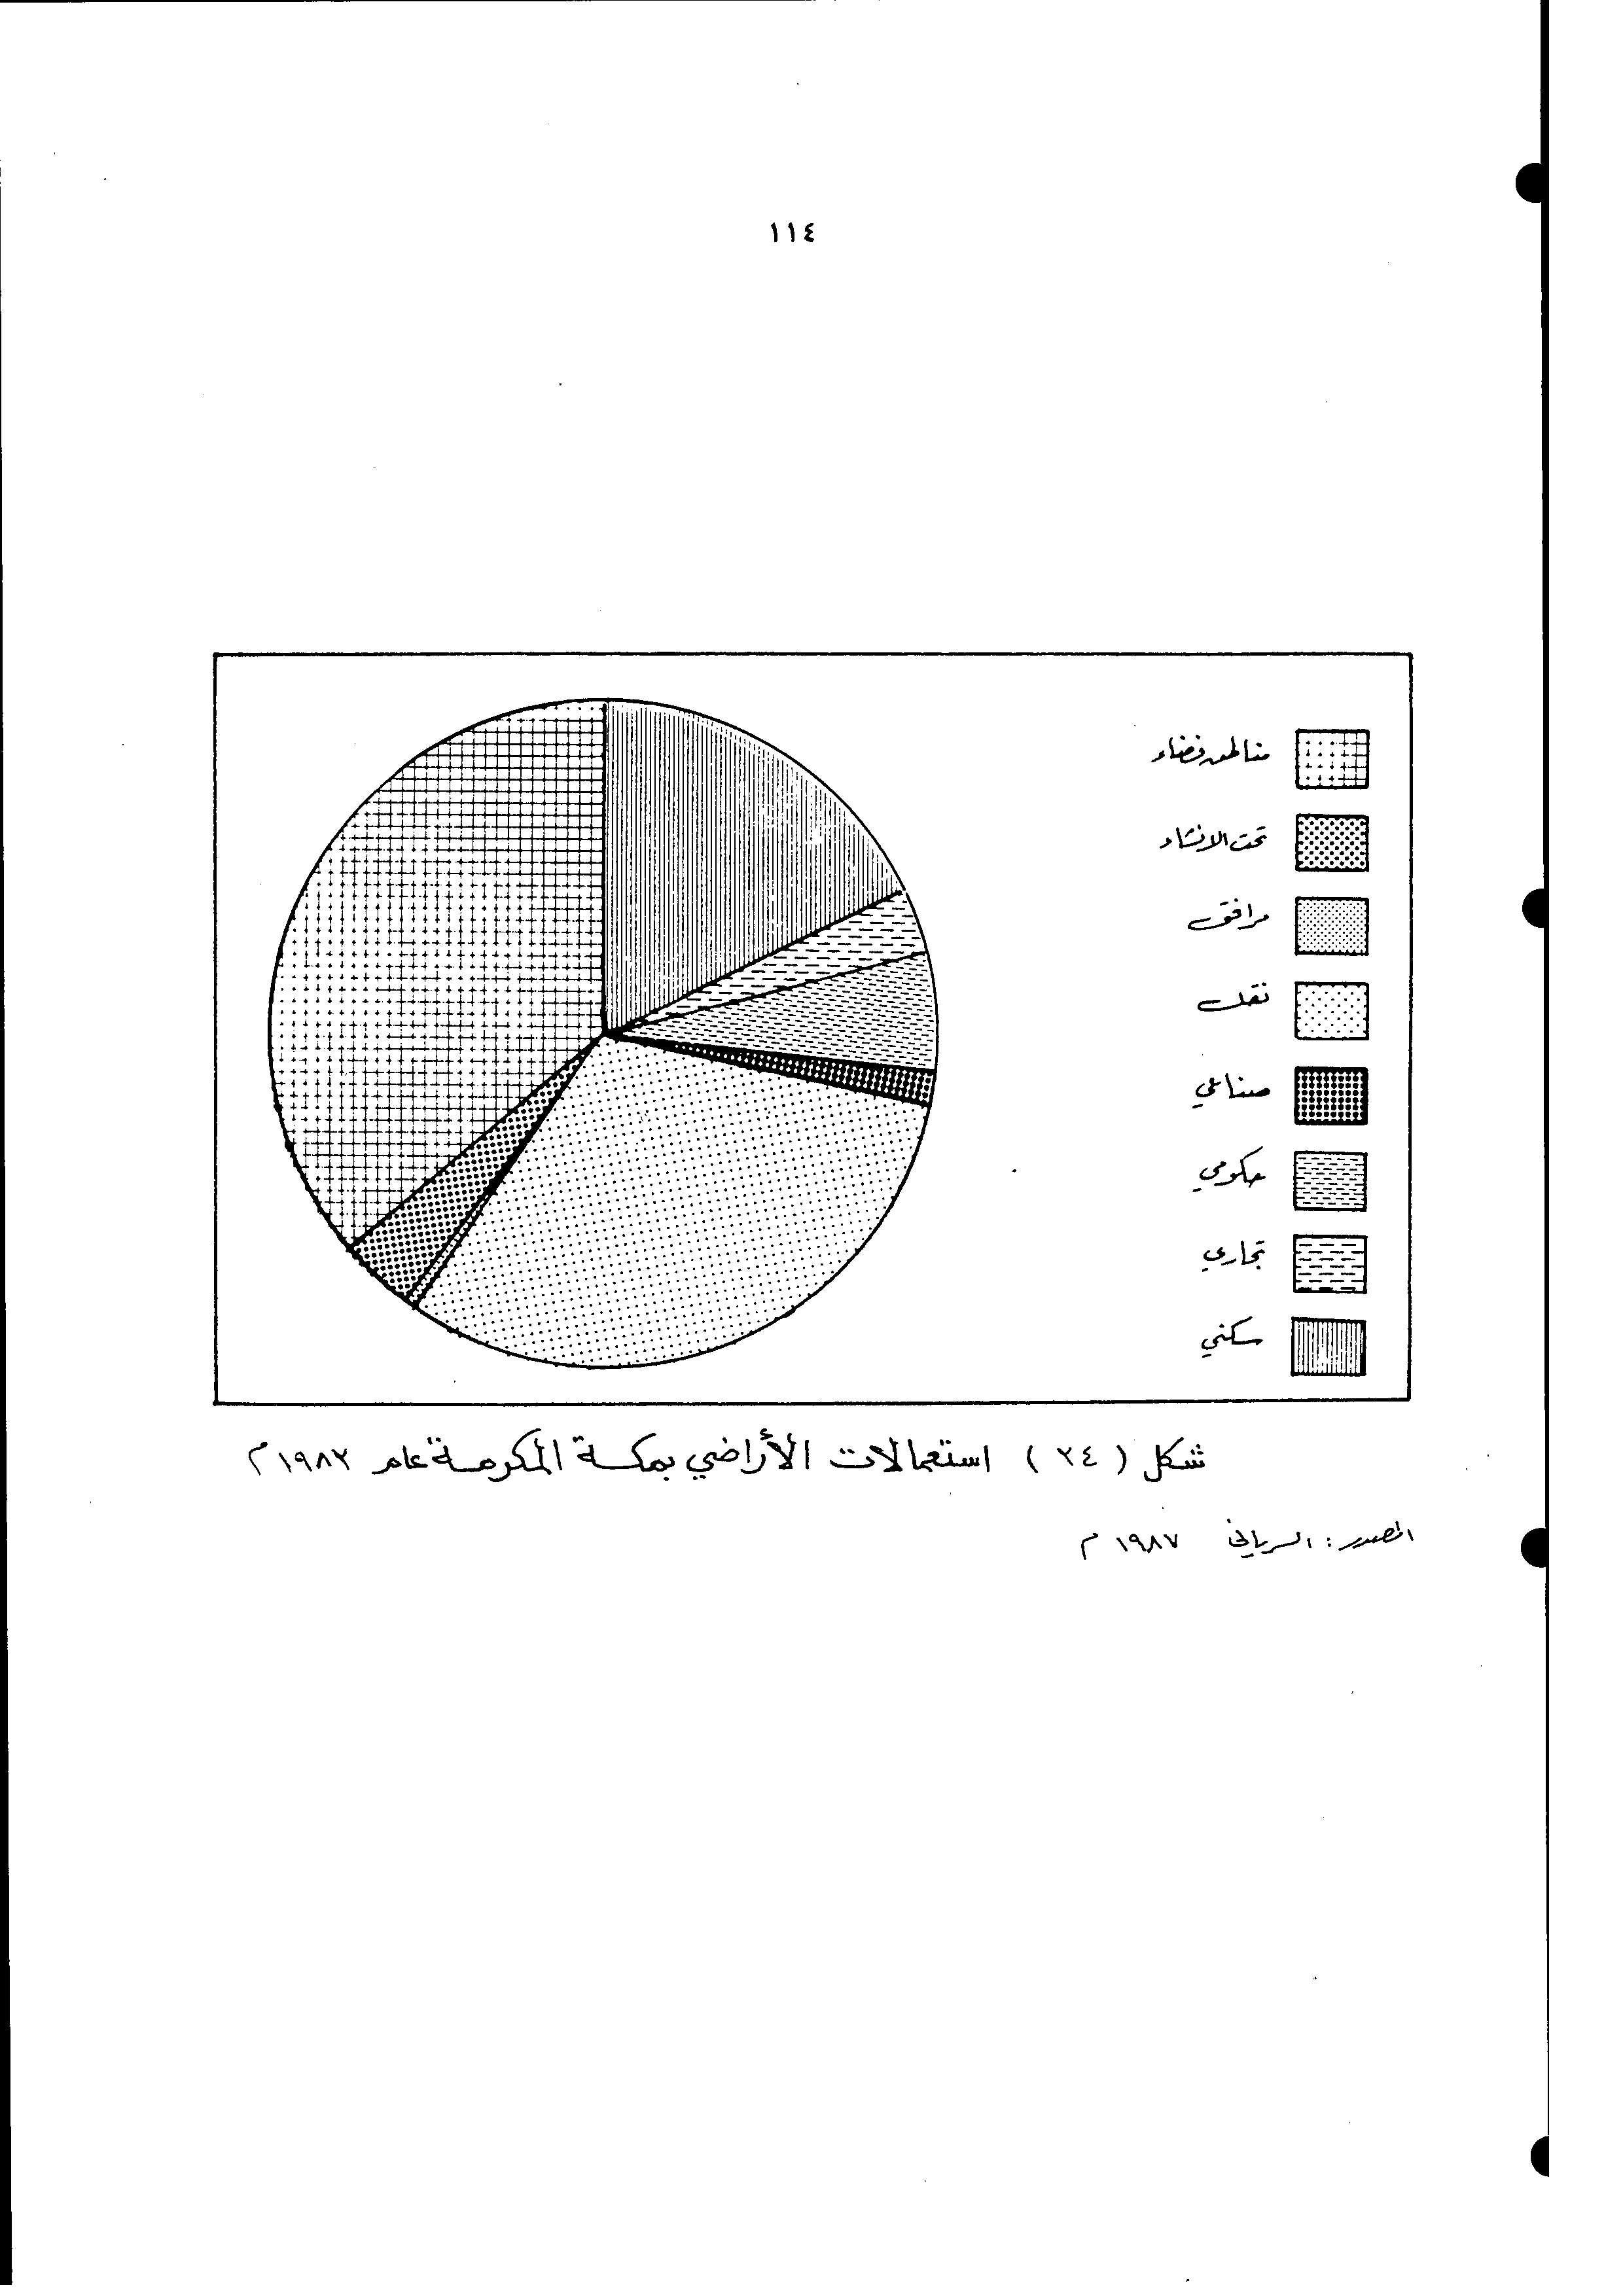 ١١٤
مناطق فضاء
تحت الانشاء
مرافق
نقل
صناعي
حكومي
تجاري
سكني
شكل ( ٢٤ ) استعمالات الأراضي بمكة المكرمة عام ١٩٨٢م
المصدر : السرياني ١٩٨٧ م